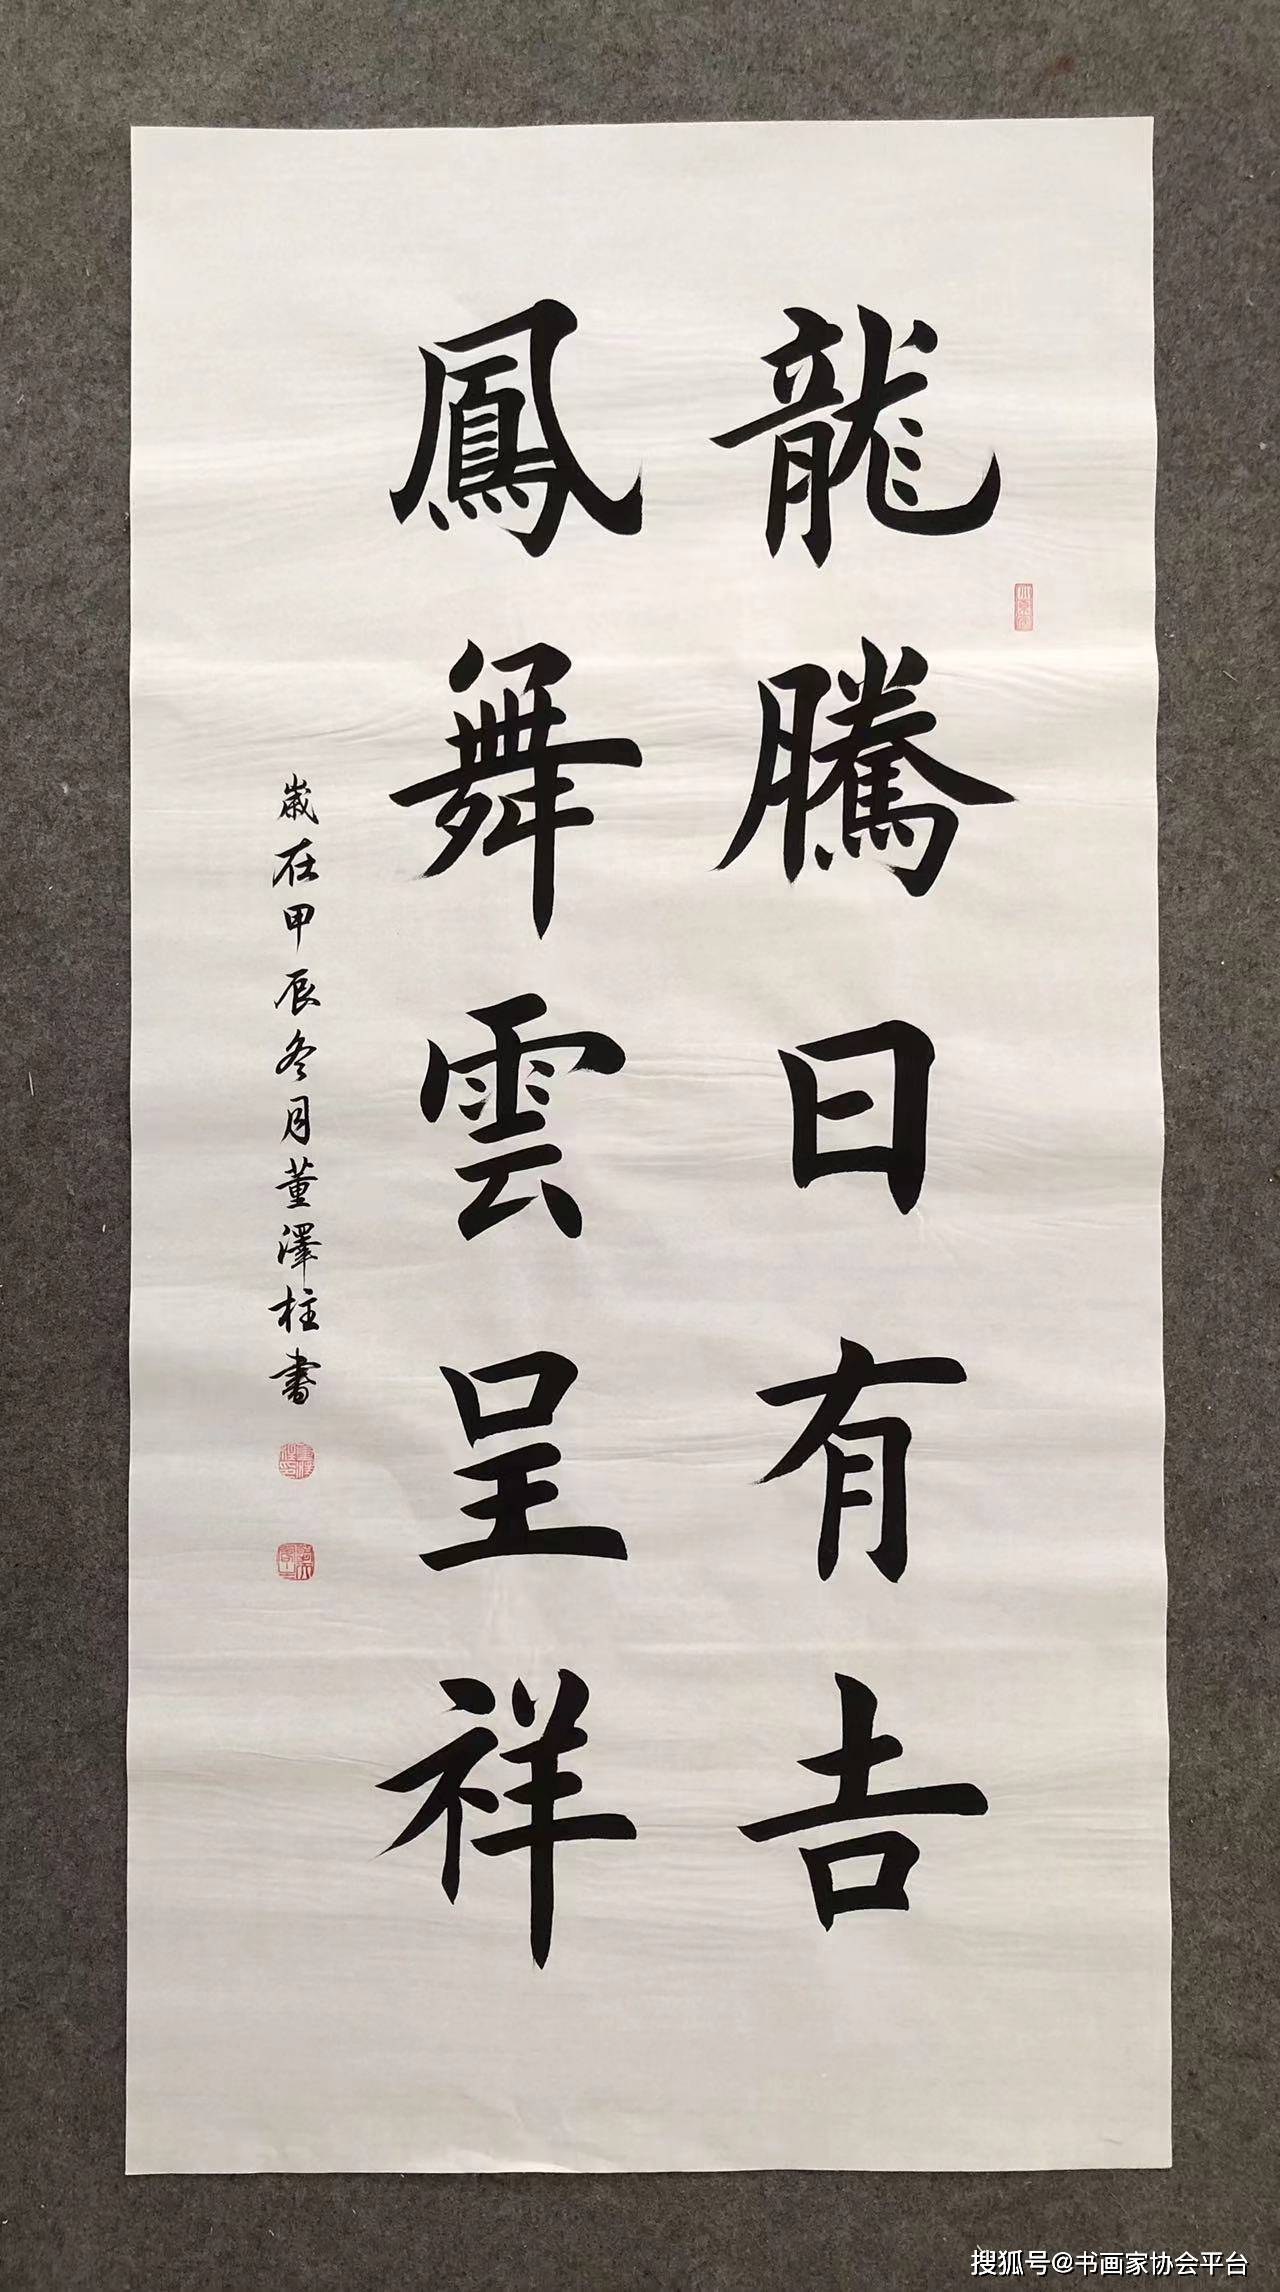 龍騰日有吉
鳳舞雲呈祥
歲在甲辰冬月董澤柱書
搜狐号@书画家协会平台